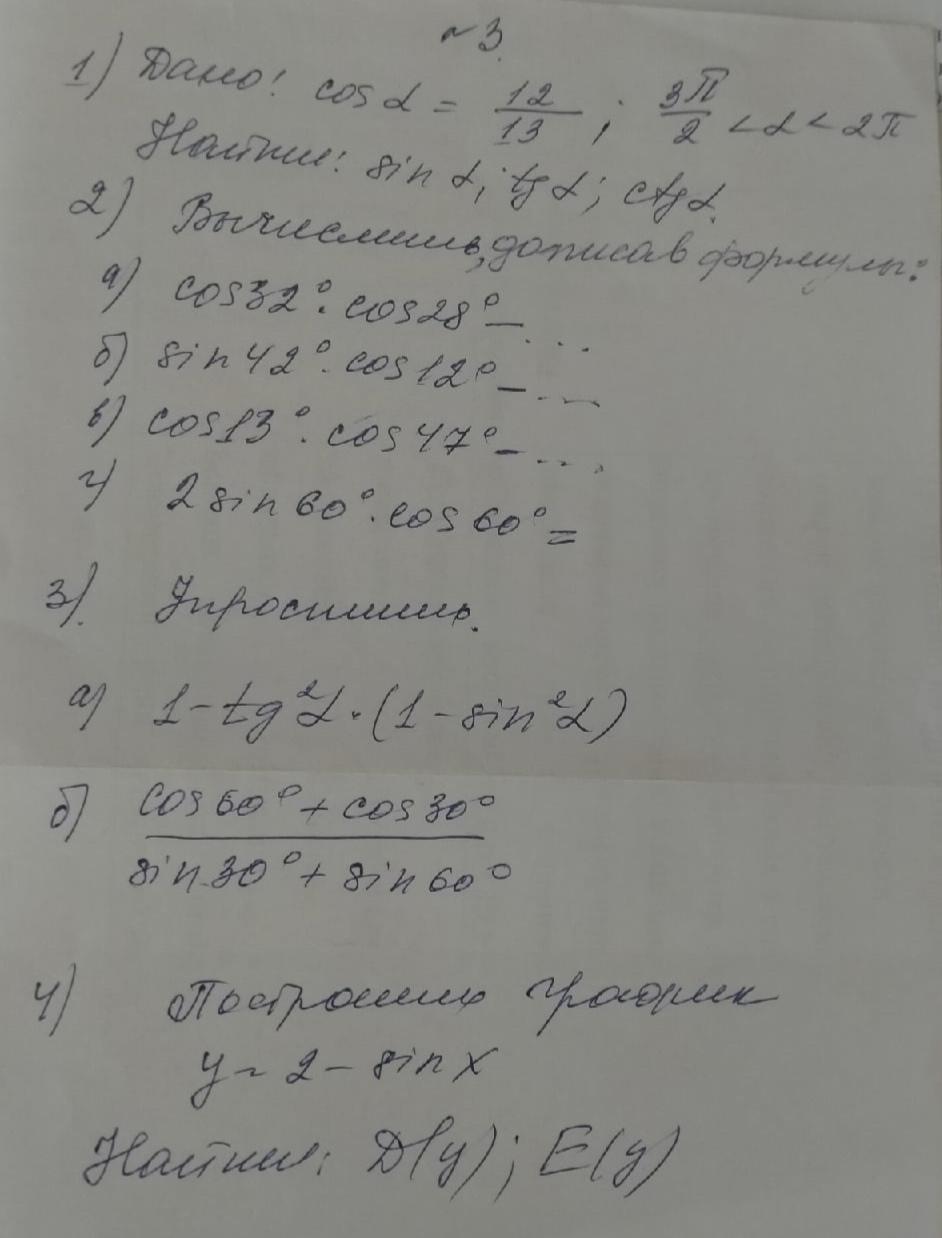 №3.
1) Дано: cos α = 12/13 ; 3π/2 < α < 2π
Найти: sin α; tg α; ctg α.
2) Вычислить, дописав формулы:
а) cos32°·cos28° – ...
б) sin42°·cos12° – ...
в) cos13°·cos47° – ...
г) 2sin60°·cos60° =
3). Упростить.
а) 1 – tg²α·(1 – sin²α)
б) cos60° + cos30°
sin30° + sin60°
4) Построить график
y = 2 – sin x
Найти: D(y); E(y)